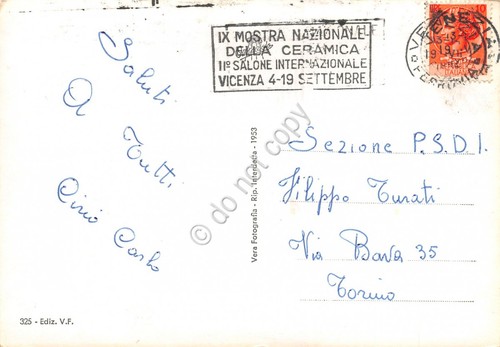 IX MOSTRA NAZIONALE
DELLA CERAMICA
IIº SALONE INTERNAZIONALE
VICENZA 4-19 SETTEMBRE
VENEZIA
FERROVIA
Saluti
A Tutti
Carlo
Sezione P.S.D.I.
Filippo Turati
Via Bava 35
Torino
Vera Fotografia - Rip. Interdetta - 1953
325 - Ediz. V.F.
do not copy